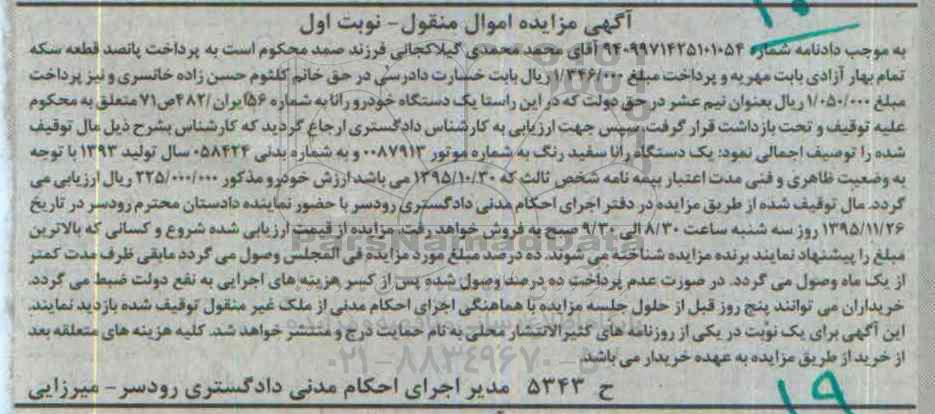 آگهی مزایده اموال منقول - نوبت اول
به موجب دادنامه شماره ۹۴۰۹۹۷۱۴۲۵۱۰۱۰۵۴ آقای محمد محمدی گیلاکجانی فرزند صمد محکوم است به پرداخت پانصد قطعه سکه
تمام بهار آزادی بابت مهریه و پرداخت مبلغ ۱/۳۴۶/۰۰۰ ریال بابت خسارت دادرسی در حق خانم کلثوم حسن زاده خانسری و نیز پرداخت
مبلغ ۱/۰۵۰/۰۰۰ ریال بعنوان نیم عشر در حق دولت که در این راستا یک دستگاه خودرو رانا به شماره ۵۶ایران/۴۸۲ص۷۱ متعلق به محکوم
علیه توقیف و تحت بازداشت قرار گرفت. سپس جهت ارزیابی به کارشناس دادگستری ارجاع گردید که کارشناس بشرح ذیل مال توقیف
شده را توصیف اجمالی نمود: یک دستگاه رانا سفید رنگ به شماره موتور ۰۰۸۷۹۱۳ و به شماره بدنی ۰۵۸۴۲۴ سال تولید ۱۳۹۳ با توجه
به وضعیت ظاهری و فنی مدت اعتبار بیمه نامه شخص ثالث که ۱۳۹۵/۱۰/۳۰ می باشد ارزش خودرو مذکور ۲۲۵/۰۰۰/۰۰۰ ریال ارزیابی می
گردد. مال توقیف شده از طریق مزایده در دفتر اجرای احکام مدنی دادگستری رودسر با حضور نماینده دادستان محترم رودسر در تاریخ
۱۳۹۵/۱۱/۲۶ روز سه شنبه ساعت ۸/۳۰ الی ۹/۳۰ صبح به فروش خواهد رفت. مزایده از قیمت ارزیابی شده شروع و کسانی که بالاترین
مبلغ را پیشنهاد نمایند برنده مزایده شناخته می شوند. ده درصد مبلغ مورد مزایده فی المجلس وصول می گردد مابقی ظرف مدت کمتر
از یک ماه وصول می گردد. در صورت عدم پرداخت ده درصد وصول شده پس از کسر هزینه های اجرایی به نفع دولت ضبط می گردد.
خریداران می توانند پنج روز قبل از حلول جلسه مزایده با هماهنگی اجرای احکام مدنی از ملک غیر منقول توقیف شده بازدید نمایند.
این آگهی برای یک نوبت در یکی از روزنامه های کثیرالانتشار محلی به نام حمایت درج و منتشر خواهد شد. کلیه هزینه های متعلقه بعد
از خرید از طریق مزایده به عهده خریدار می باشد.
ح ۵۳۴۳ مدیر اجرای احکام مدنی دادگستری رودسر - میرزایی
ParsNamadData
۰۲۱-۸۸۳۴۹۶۷۰
۱۹